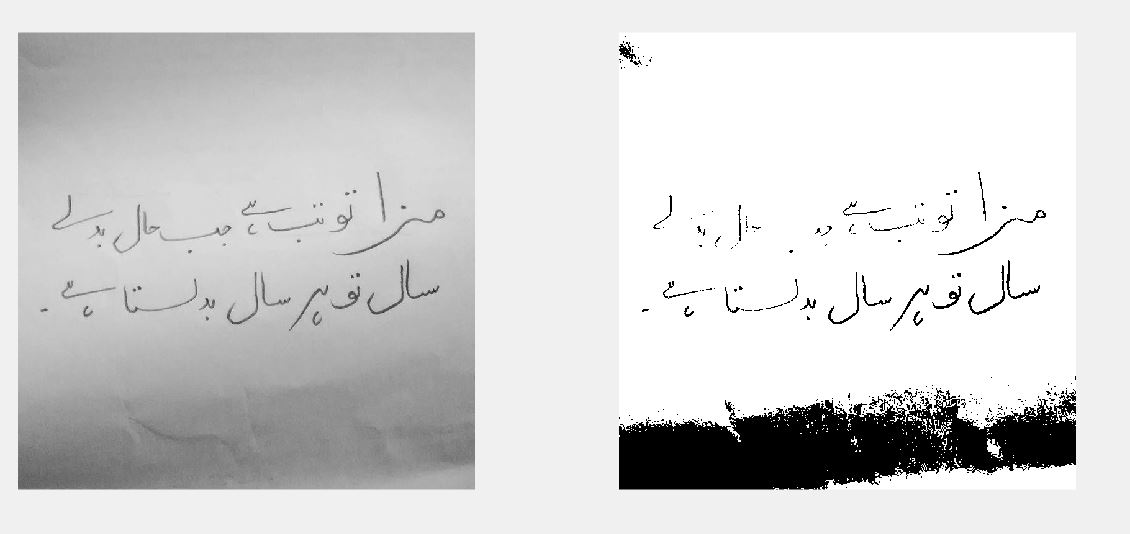 مزا تو تب ہے جب حال بدلے
سال تو ہر سال بدلتا ہے ۔
مزا تو تب ہے جب حال بدلے
سال تو ہر سال بدلتا ہے ۔